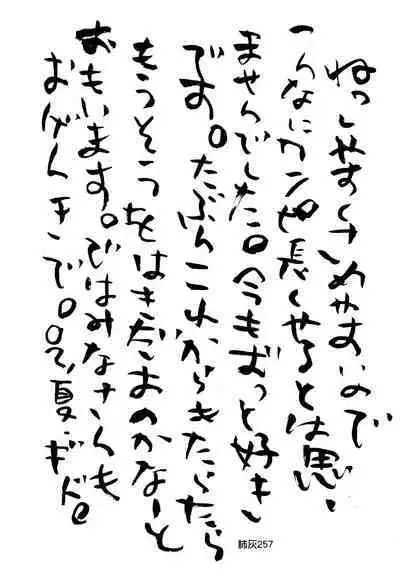 ねっしやすくさめやすいので
こんなにカンペ長くせるとは思い
ませんでした。今もずっと好き
です。たぶんこれからきたらたら
もうそうをはきだすのかなーと
おもいます。ではみなさんも
おげんきで。
夏・ギドe
姉灰257